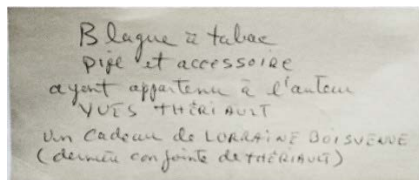 Blague à tabac
pipe et accessoire
ayent appartenu à l'auteur
YVES THÉRIAULT
un cadeau de LORRAINE BOISVENUE
(dernière conjointe de THÉRIAULT)